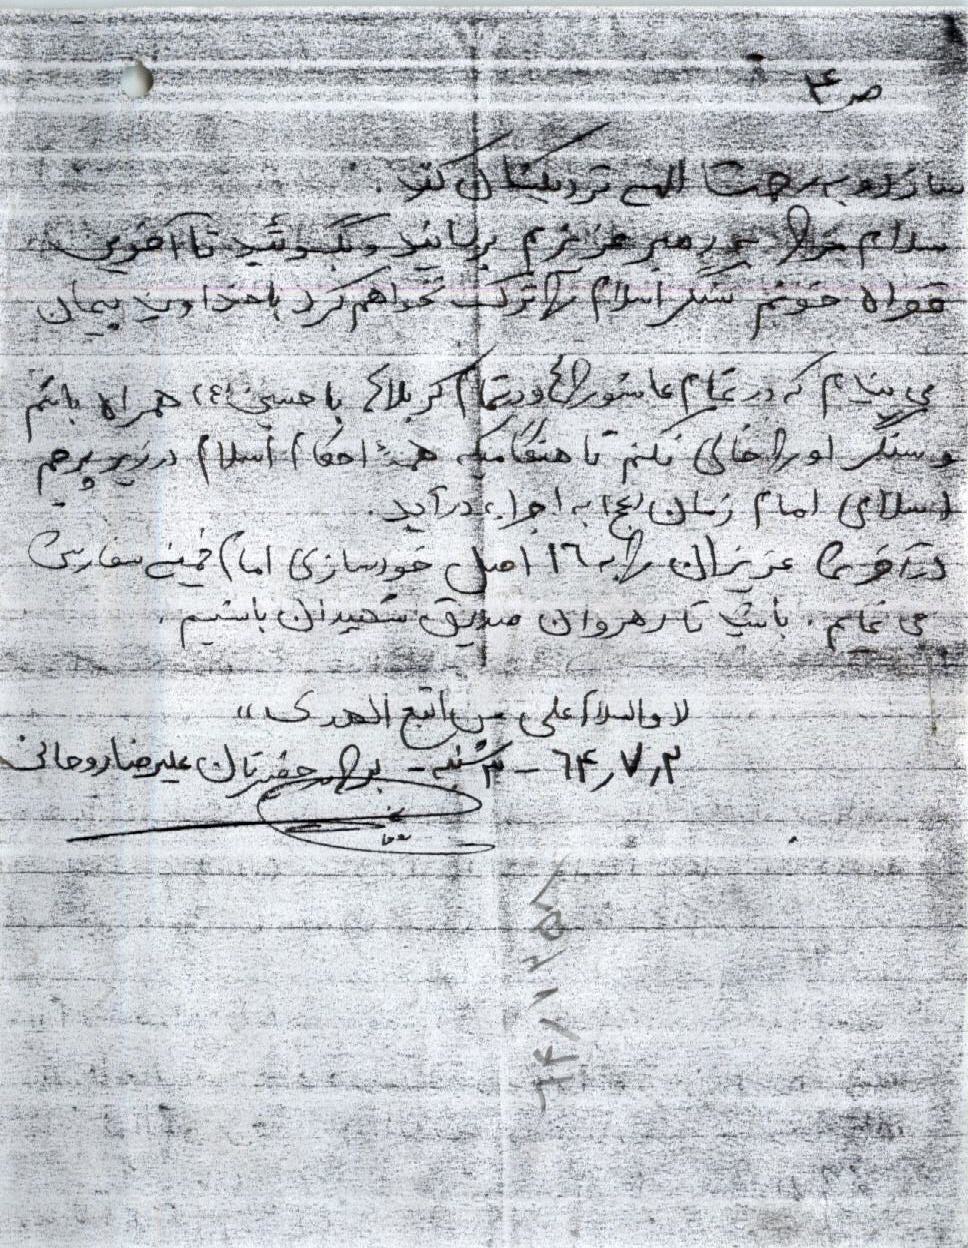 ص ۴
سازد و به رحمت الهی نزدیکتان کند.
سلام مرا به رهبر عزیزم برسانید و بگوئید تا آخرین
قطره خونم سنگر اسلام را ترک نخواهم کرد با خداوند پیمان
می بندم که در تمام عاشورا و در تمام کربلا با حسین (ع) همراه باشم
و سنگر او را خالی نکنم تا هنگامیکه همه احکام اسلام در زیر پرچم
اسلامی امام زمان (عج) به اجرا درآید.
در آخر عزیزان را به ۱۶ اصل خودسازی امام خمینی سفارش
می نمایم. باشد تا رهروان صدیق شهیدان باشیم.
« والسلام علی من اتبع الهدی »
۶۴٫۷٫۲ - ۳ شنبه - برادر حقیرتان علیرضا روحانی